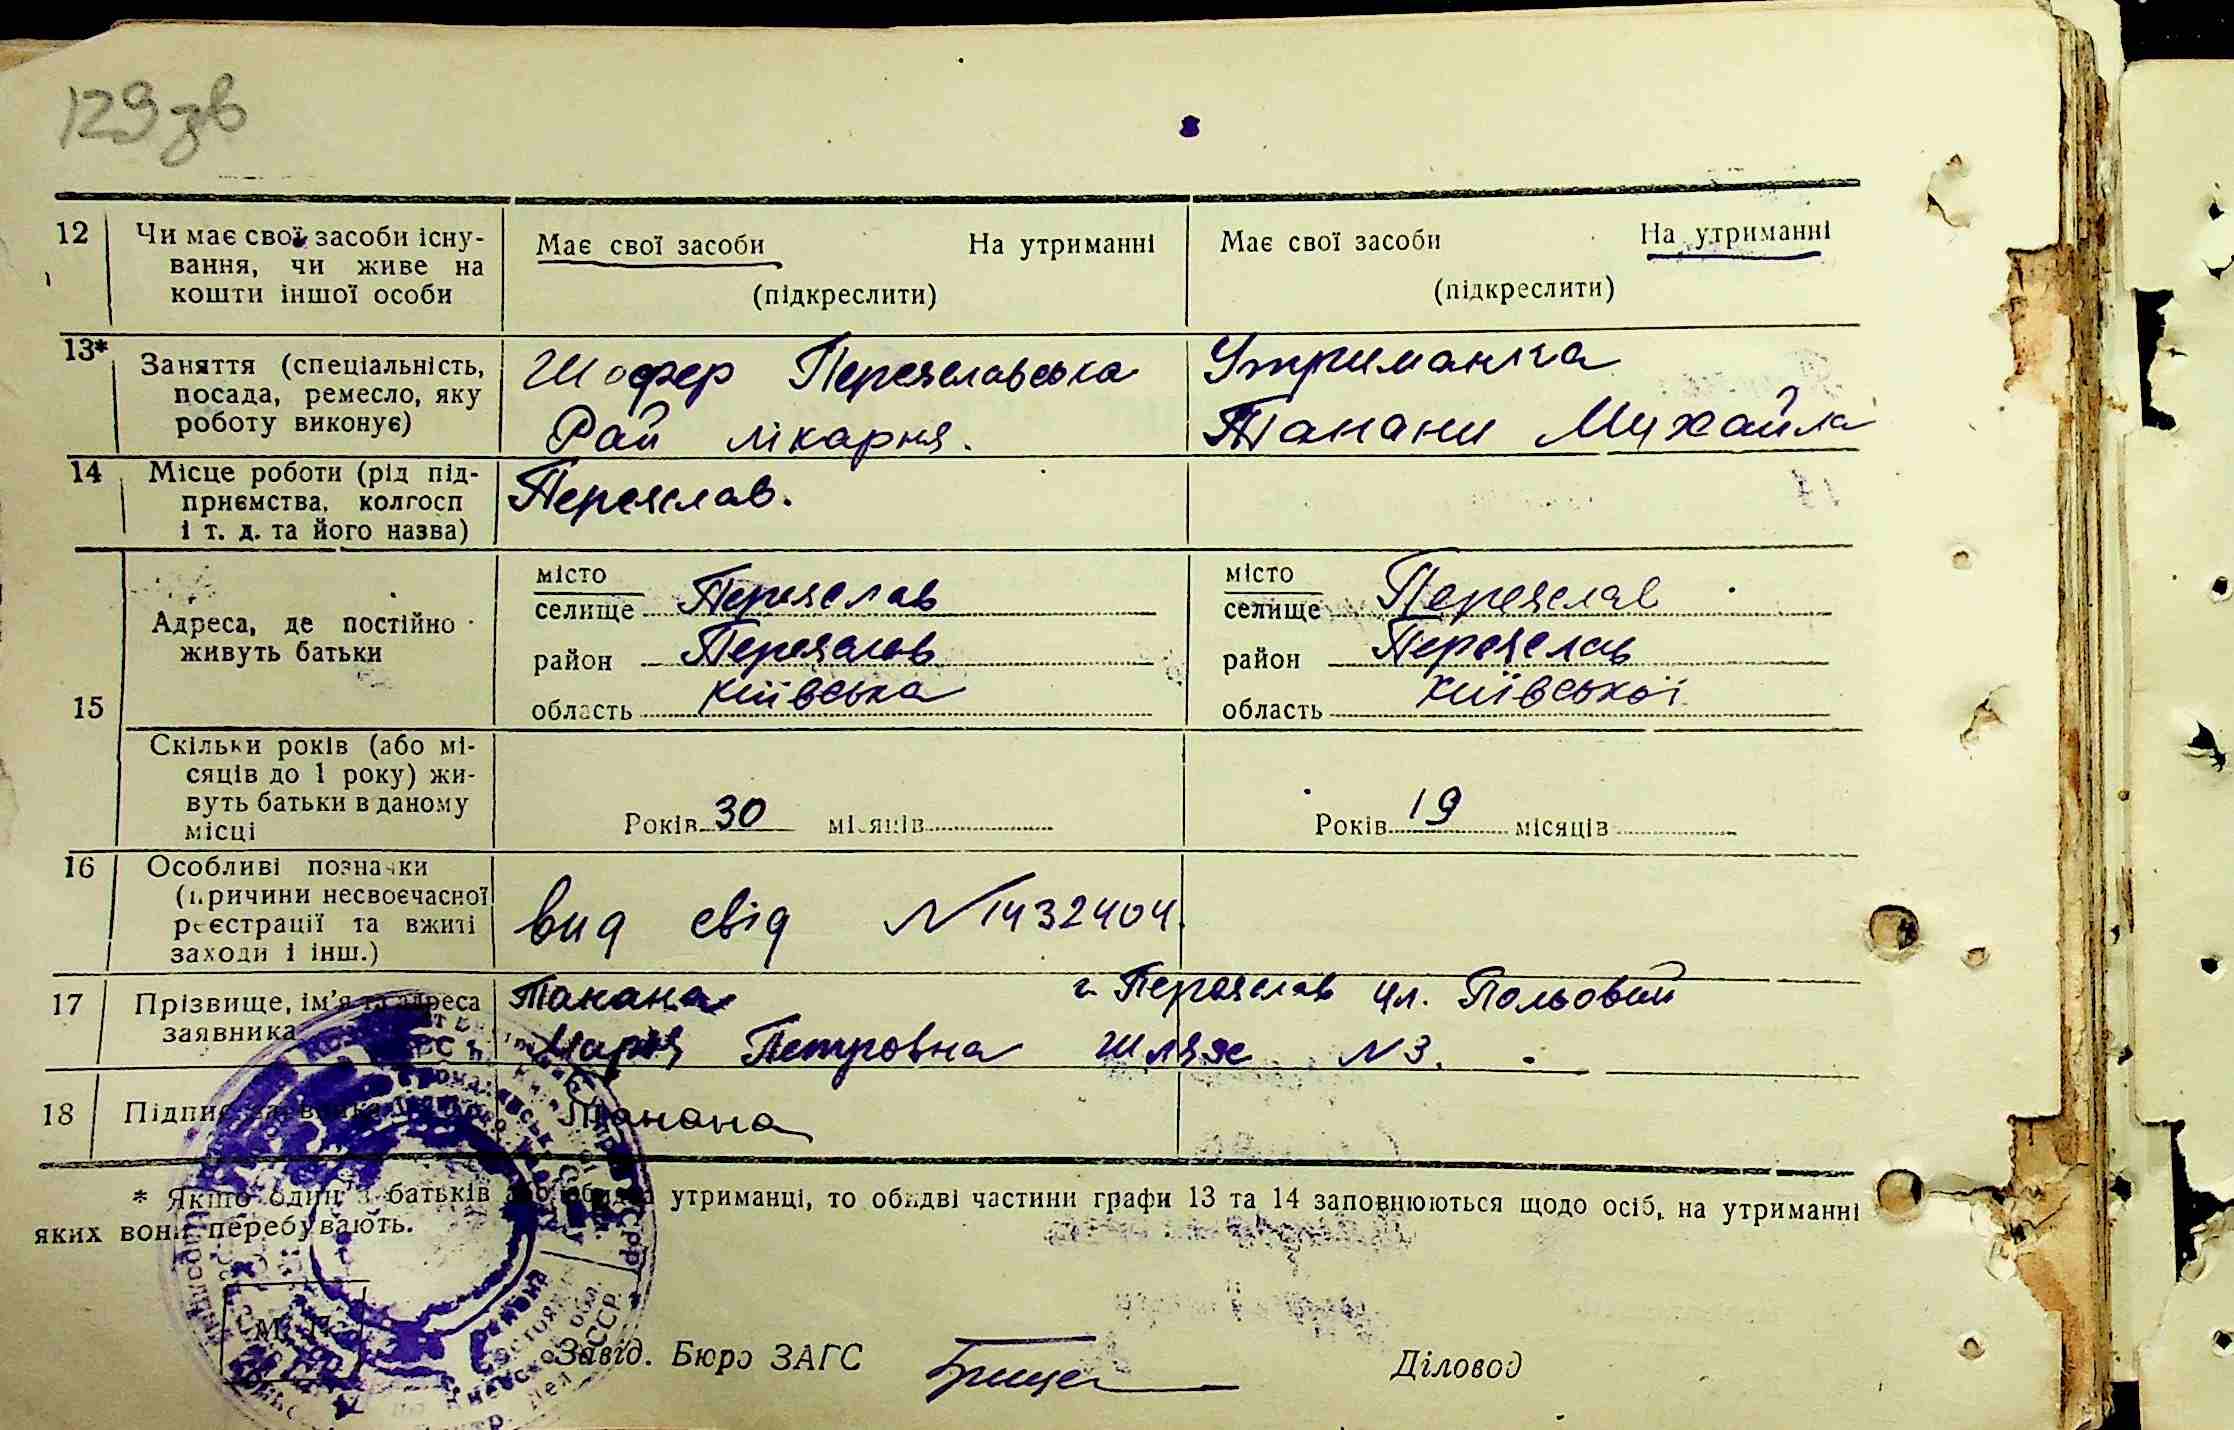 129 зв
12 Чи має свої засоби існу-
вання, чи живе на
кошти іншої особи
Має свої засоби На утриманні
(підкреслити)
Має свої засоби На утриманні
(підкреслити)
13* Заняття (спеціальність,
посада, ремесло, яку
роботу виконує)
Шофер Переяславська
Рай лікарня.
Утриманка
Танани Михайла
14 Місце роботи (рід під-
приємства, колгосп
і т. д. та його назва)
Переяслав.
15 Адреса, де постійно
живуть батьки
місто
селище Переяслав
район Переяслав
область Київська
місто
селище Переяслав
район Переяслав
область Київської
Скільки років (або мі-
сяців до 1 року) жи-
вуть батьки в даному
місці
Років 30 місяців
Років 19 місяців
16 Особливі позначки
(причини несвоєчасної
реєстрації та вжиті
заходи і інш.)
вид свід N 1432404.
17 Прізвище, ім'я та адреса
заявника
Танана г. Переяслав ул. Польовий
Марія Петровна шлях N 3.
18 Підпис заявника
Танана
* Якщо один з батьків або обидва утриманці, то обидві частини графи 13 та 14 заповнюються щодо осіб, на утриманні
яких вони перебувають.
М. П.
Завід. Бюро ЗАГС
Діловод